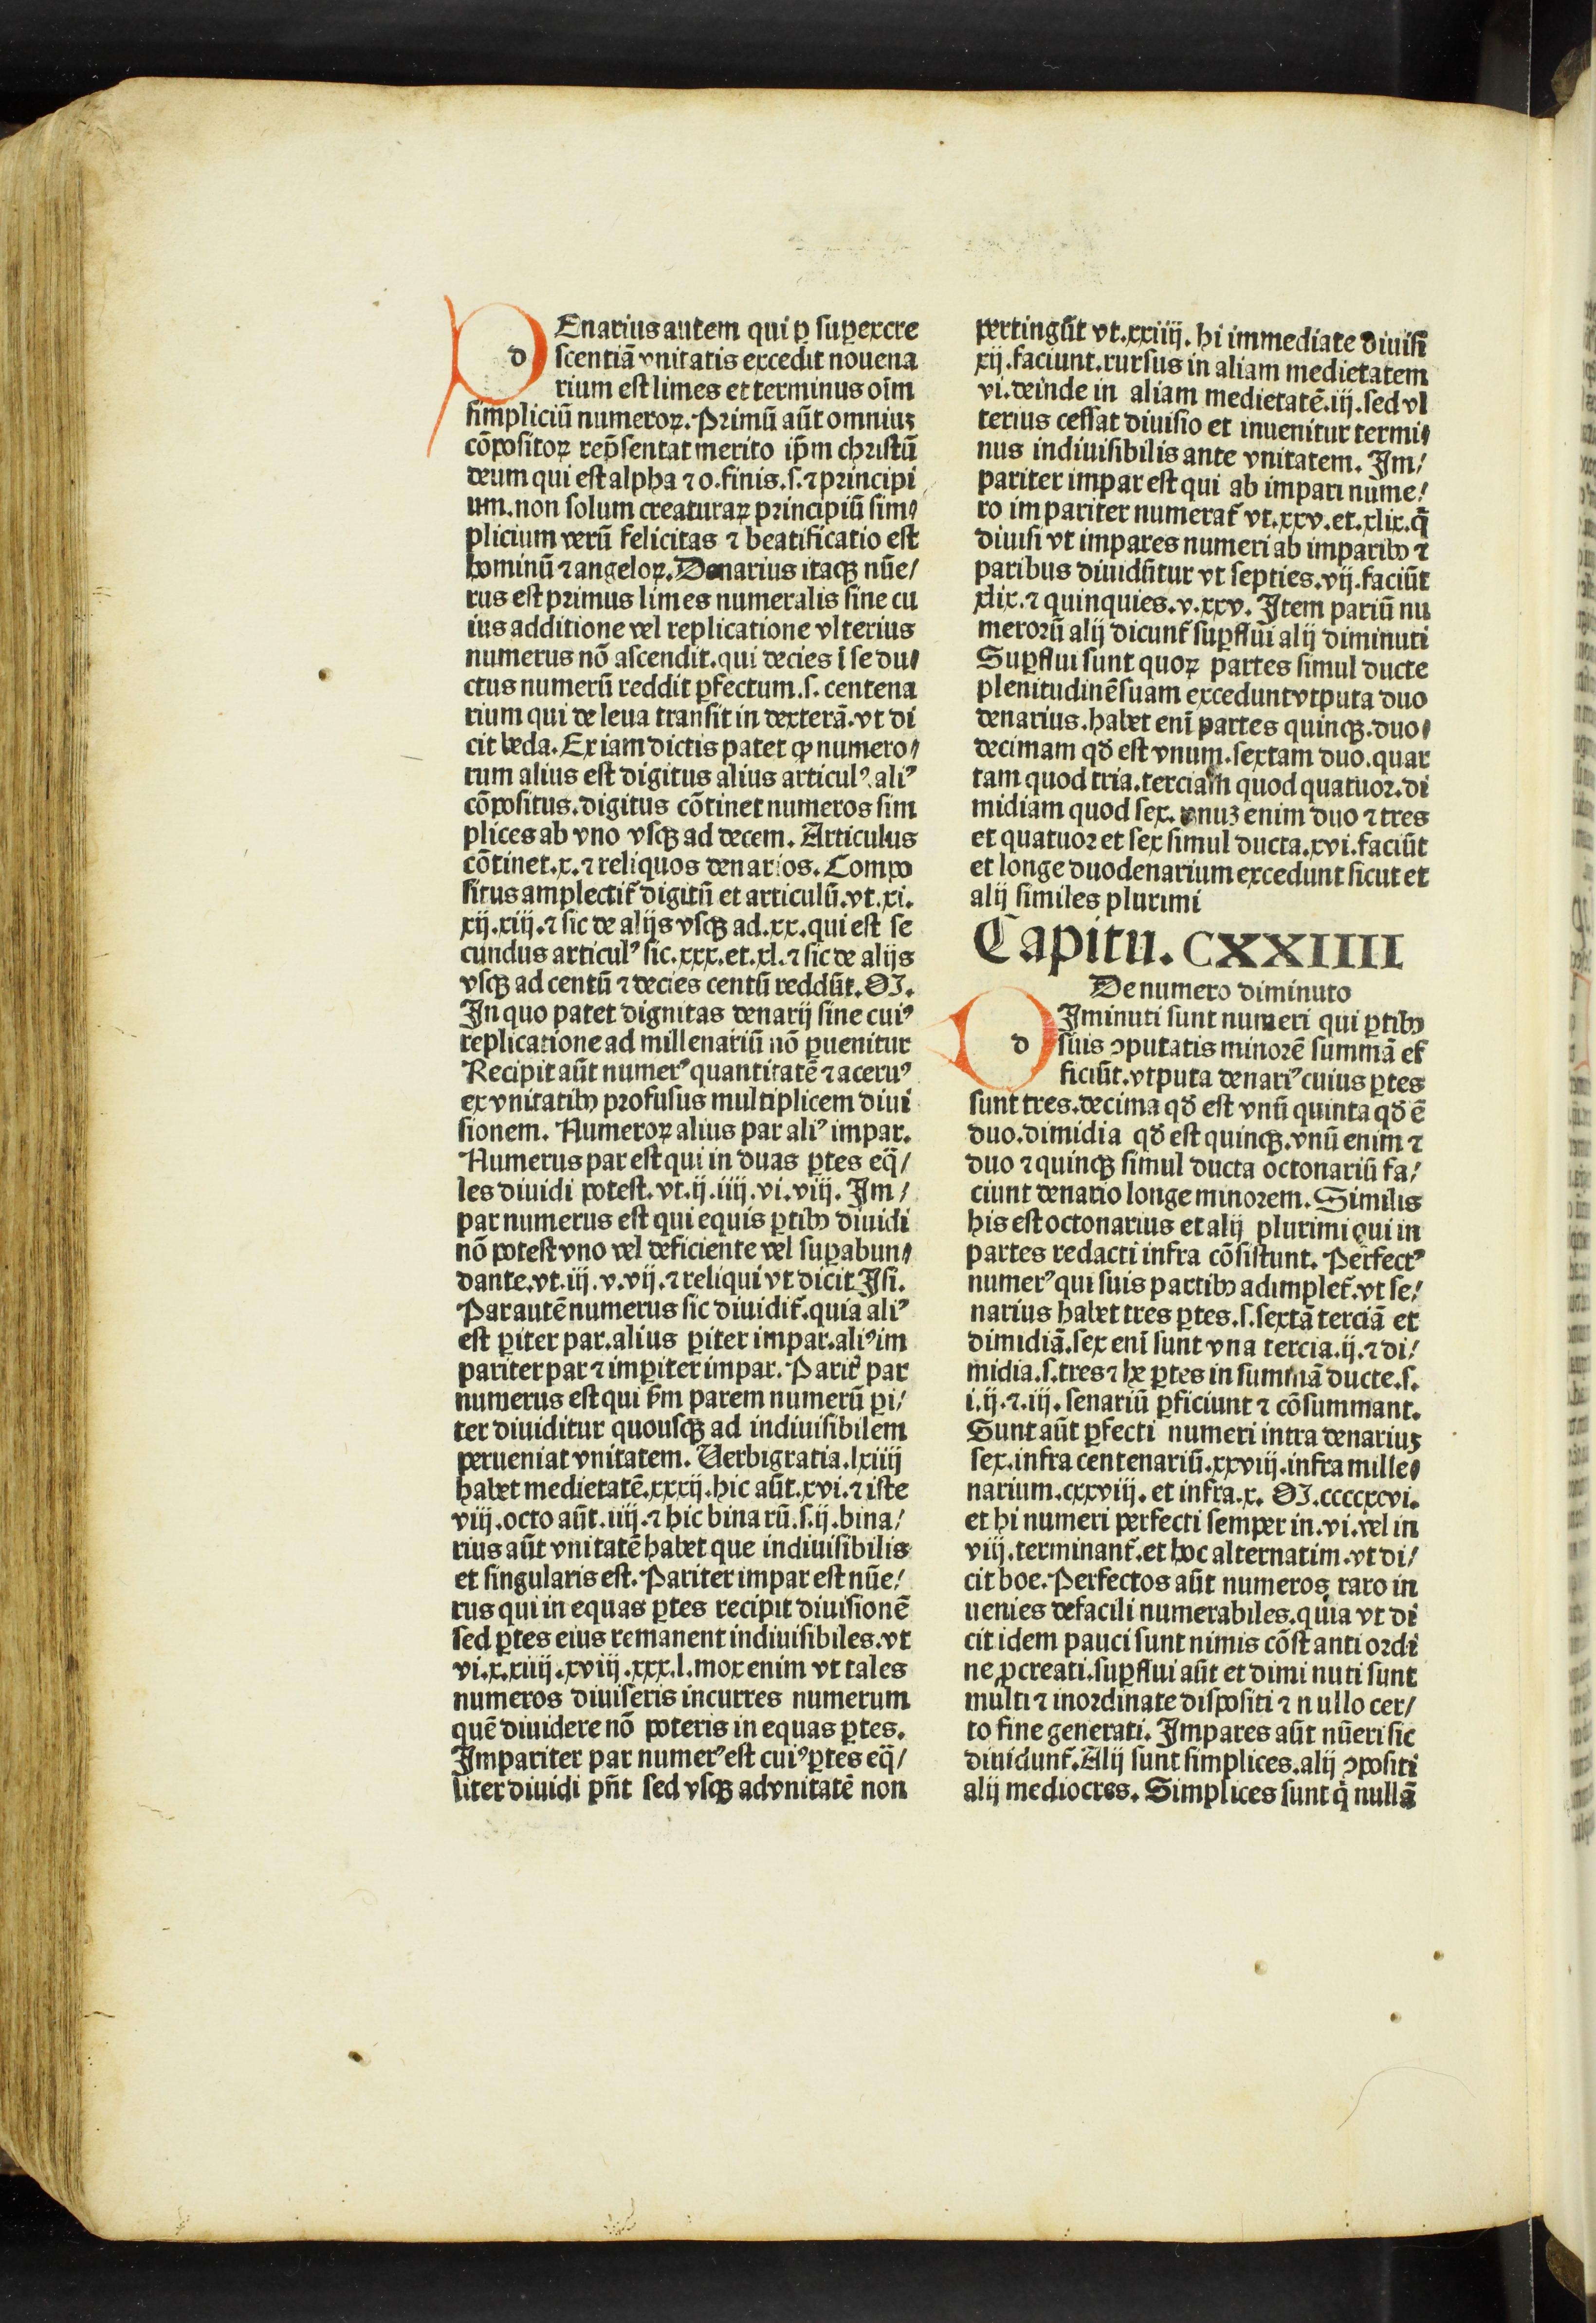 d
Enarius autem qui ꝑ suꝑexcre
scentiā vnitatis excedit nouena
rium est limes et terminus oīm
simpliciū numeroꝝ. Primū aūt omniuꝫ
cōpositoꝝ rep̄sentat merito ip̄m christū
deum qui est alpha ⁊ o. finis. s. ⁊ principi
um. non solum creaturaꝝ principiū sim/
plicium verū felicitas ⁊ beatificatio est
hominū ⁊ angeloꝝ. Denarius itaqꝫ nūe/
rus est primus limes numeralis sine cu
ius additione vel replicatione vlterius
numerus nō ascendit. qui decies ī se du/
ctus numerū reddit ꝑfectum. s. centena
rium qui de leua transit in dexterā. vt di
cit beda. Ex iam dictis patet ꝙ numero/
rum alius est digitus alius articulꝰ. aliꝰ
cōpositus. digitus cōtinet numeros sim
plices ab vno vsqꝫ ad decem. Articulus
cōtinet. x. ⁊ reliquos denarios. Compo
situs amplectit᷑ digitū et articulū. vt. xi.
xij. xiij. ⁊ sic de alijs vsqꝫ ad. xx. qui est se
cundus articulꝰ sic. xxx. et. xl. ⁊ sic de alijs
vsqꝫ ad centū ⁊ decies centū reddūt. M.
In quo patet dignitas denarij sine cuiꝰ
replicatione ad millenariū nō ꝑuenitur
Recipit aūt numerꝰ quantitatē ⁊ aceruꝰ
ex vnitatibꝰ profusus multiplicem diui
sionem. Numeroꝝ alius par aliꝰ impar.
Numerus par est qui in duas ꝑtes eq̄/
les diuidi potest. vt. ij. iiij. vi. viij. Im/
par numerus est qui equis ꝑtibꝰ diuidi
nō potest vno vel deficiente vel suꝑabun/
dante. vt. iij. v. vij. ⁊ reliqui vt dicit Isi.
Par autē numerus sic diuidit᷑. quia aliꝰ
est ꝑiter par. alius ꝑiter impar. aliꝰ im
pariter par ⁊ imꝑiter impar. Parit᷑ par
numerus est qui ẜm parem numerū ꝑi/
ter diuiditur quousqꝫ ad indiuisibilem
perueniat vnitatem. Verbigratia. lxiiij
habet medietatē. xxxij. hic aūt. xvi. ⁊ iste
viij. octo aūt. iiij. ⁊ hic bina rū. s. ij. bina/
rius aūt vnitatē habet que indiuisibilis
et singularis est. Pariter impar est nūe/
rus qui in equas ꝑtes recipit diuisionē
sed ꝑtes eius remanent indiuisibiles. vt
vi. x. xiiij. xviij. xxx. l. mox enim vt tales
numeros diuiseris incurres numerum
quē diuidere nō poteris in equas ꝑtes.
Impariter par numerꝰ est cuiꝰ ꝑtes eq̄/
liter diuidi pn̄t sed vsqꝫ ad vnitatē non
pertingūt vt. xxiiij. hi immediate diuisi
xij. faciunt. rursus in aliam medietatem
vi. deinde in aliam medietatē. iij. sed vl
terius cessat diuisio et inuenitur termi/
nus indiuisibilis ante vnitatem. Im/
pariter impar est qui ab impari nume/
ro impariter numerat᷑ vt. xxv. et. xlix. q̄
diuisi vt impares numeri ab imparibꝰ ⁊
paribus diuidūtur vt septies. vij. faciūt
xlix. ⁊ quinquies. v. xxv. Item pariū nu
merorū alij dicunt᷑ suꝑflui alij diminuti
Suꝑflui sunt quoꝝ partes simul ducte
plenitudinē suam excedunt vtputa duo
denarius. habet enī partes quinqꝫ. duo/
decimam qd̄ est vnum. sextam duo. quar
tam quod tria. terciam quod quatuor. di
midiam quod sex. vnuꝫ enim duo ⁊ tres
et quatuor et sex simul ducta. xvi. faciūt
et longe duodenarium excedunt sicut et
alij similes plurimi
Capitu. CXXIIII
De numero diminuto
d
Iminuti sunt numeri qui ꝑtibꝰ
suis ꝯputatis minorē summā ef
ficiūt. vtputa denariꝰ cuius ꝑtes
sunt tres. decima qd̄ est vnū quinta qd̄ ē
duo. dimidia qd̄ est quinqꝫ. vnū enim ⁊
duo ⁊ quinqꝫ simul ducta octonariū fa/
ciunt denario longe minorem. Similis
his est octonarius et alij plurimi qui in
partes redacti infra cōsistunt. Perfectꝰ
numerꝰ qui suis partibꝰ adimplet᷑. vt se/
narius habet tres ꝑtes. s. sextā terciā et
dimidiā. sex enī sunt vna tercia. ij. ⁊ di/
midia. s. tres ⁊ he ꝑtes in summā ducte. s.
i. ij. ⁊. iij. senariū ꝑficiunt ⁊ cōsummant.
Sunt aūt ꝑfecti numeri intra denariuꝫ
sex. infra centenariū. xxviij. infra mille/
narium. cxxviij. et infra. x. M. ccccxcvi.
et hi numeri perfecti semper in. vi. vel in
viij. terminant᷑. et hoc alternatim. vt di/
cit boe. Perfectos aūt numeros raro in
uenies de facili numerabiles. quia vt di
cit idem pauci sunt nimis cōstanti ordi
ne ꝓcreati. suꝑflui aūt et dimi nuti sunt
multi ⁊ inordinate dispositi ⁊ nullo cer/
to fine generati. Impares aūt nūeri sic
diuidunt᷑. Alij sunt simplices. alij ꝯpositi
alij mediocres. Simplices sunt q̇ nullā